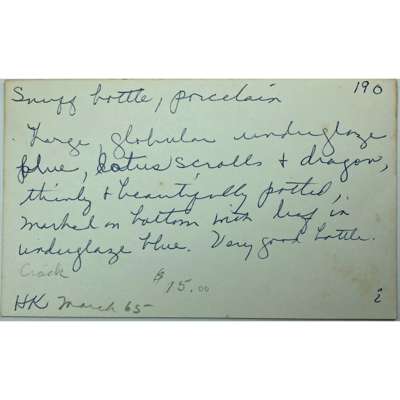 190
Snuff bottle, porcelain
Large globular underglaze
blue, lotus scrolls + dragon,
thinly + beautifully potted,
marked on bottom with leaf in
underglaze blue. Very good bottle.
Crack
$15.00
HK March 65
i